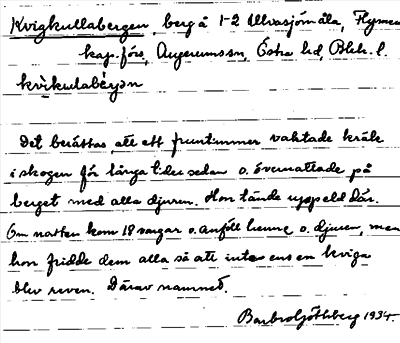 Kvigkullabergen, berg å 1-2 Ulvasjömåla, Flymen
kap.förs, Augerums sn, Östra hd, Blek. l.
kvikulabéryen
Det berättas att ett fruntimmer vaktade kräk
i skogen för långa tider sedan o. övernattade på
berget med alla djuren. Hon tände upp eld där.
Om natten kom 18 vargar o. anföll henne o. djuren, men
hon fridde dem alla så att inte ens en kviga
blev reven. Därav namnet.
Barbro Göthberg 1934.